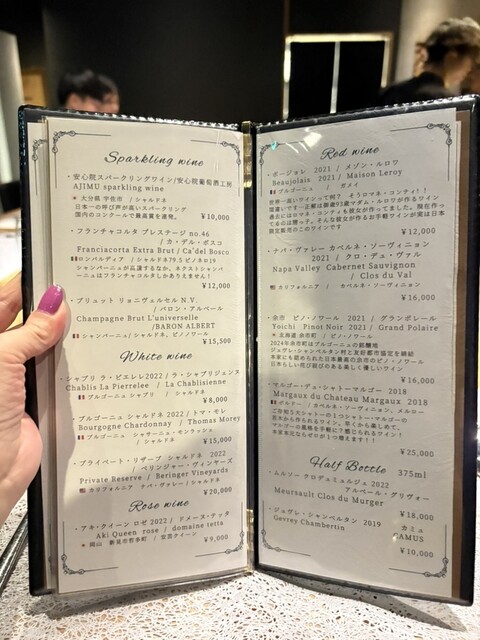 Sparkling wine
・安心院スパークリングワイン/安心院葡萄酒工房
AJIMU sparkling wine
大分県 宇佐市 / シャルドネ
日本一の呼び声が高いスパークリング
国内のコンクールで最高賞を連発。
¥10,000
・フランチャコルタ プレステージ no.46
/ カ・デル・ボスコ
Franciacorta Extra Brut / Ca'del Bosco
ロンバルディア / シャルドネ79.5 ピノネロ19
シャンパーニュが品薄するなか、ネクストシャンパ
ーニュはフランチャコルタしかありません!
¥12,000
・ブリュット リョニヴェルセル N.V.
/ バロン・アルベール
Champagne Brut L'universelle
/BARON ALBERT
シャンパーニュ/ シャルドネ/ピノ・ノワール
¥15,500
White wine
・シャブリ ラ・ピエレレ2022 / ラ・シャブリジェンヌ
Chablis La Pierrelee / La Chablisienne
ブルゴーニュ シャブリ / シャルドネ
¥8,000
・ブルゴーニュ シャルドネ 2022 / トマ・モレ
Bourgogne Chardonnay / Thomas Morey
ブルゴーニュ シャサーニュ・モンラッシェ
/ シャルドネ
¥15,000
・プライベート・リザーブ シャルドネ 2022
/ ベリンジャー・ヴィンヤーズ
Private Reserve / Beringer Vineyards
カリフォルニア ナパ・ヴァレー/ シャルドネ
¥20,000
Rose wine
・アキ・クイーン ロゼ 2022 / ドメーヌ・テッタ
Aki Queen rose / domaine tetta
岡山 新見市哲多町 / 安芸クイーン
¥9,000
Red wine
・ボージョレ 2021 / メゾン・ルロワ
Beaujolais 2021 / Maison Leroy
ブルゴーニュ / ガメイ
世界一高いワインって何? そうロマネ・コンティ!!
¥12,000
・ナパ・ヴァレー カベルネ・ソーヴィニョン
2021 / クロ・デュ・ヴァル
Napa Valley Cabernet Sauvignon
/ Clos du Val
カリフォルニア / カベルネ・ソーヴィニヨン
¥16,000
・余市 ピノ・ノワール 2021 / グランポレール
Yoichi Pinot Noir 2021 / Grand Polaire
北海道 余市町 / ピノ・ノワール
2024年余市町はブルゴーニュの銘醸地
ジュヴレ・シャンベルタン村と友好都市協定を締結
本家にも認められた日本最高の余市のピノ・ノワール
¥16,000
・マルゴー・デュ・シャトーマルゴー 2018
Margaux du Chateau Margaux 2018
ボルドー / カベルネ・ソーヴィニョン、メルロー
ご存知5大シャトーの1つシャトー・マルゴーの
¥25,000
Half Bottle 375ml
・ムルソー クロデュミュルジュ 2022
アルベール・グリヴォー
Meursault Clos du Murger
¥18,000
・ジュヴレ・シャンベルタン 2019 カミュ
Gevrey Chambertin CAMUS
¥10,000